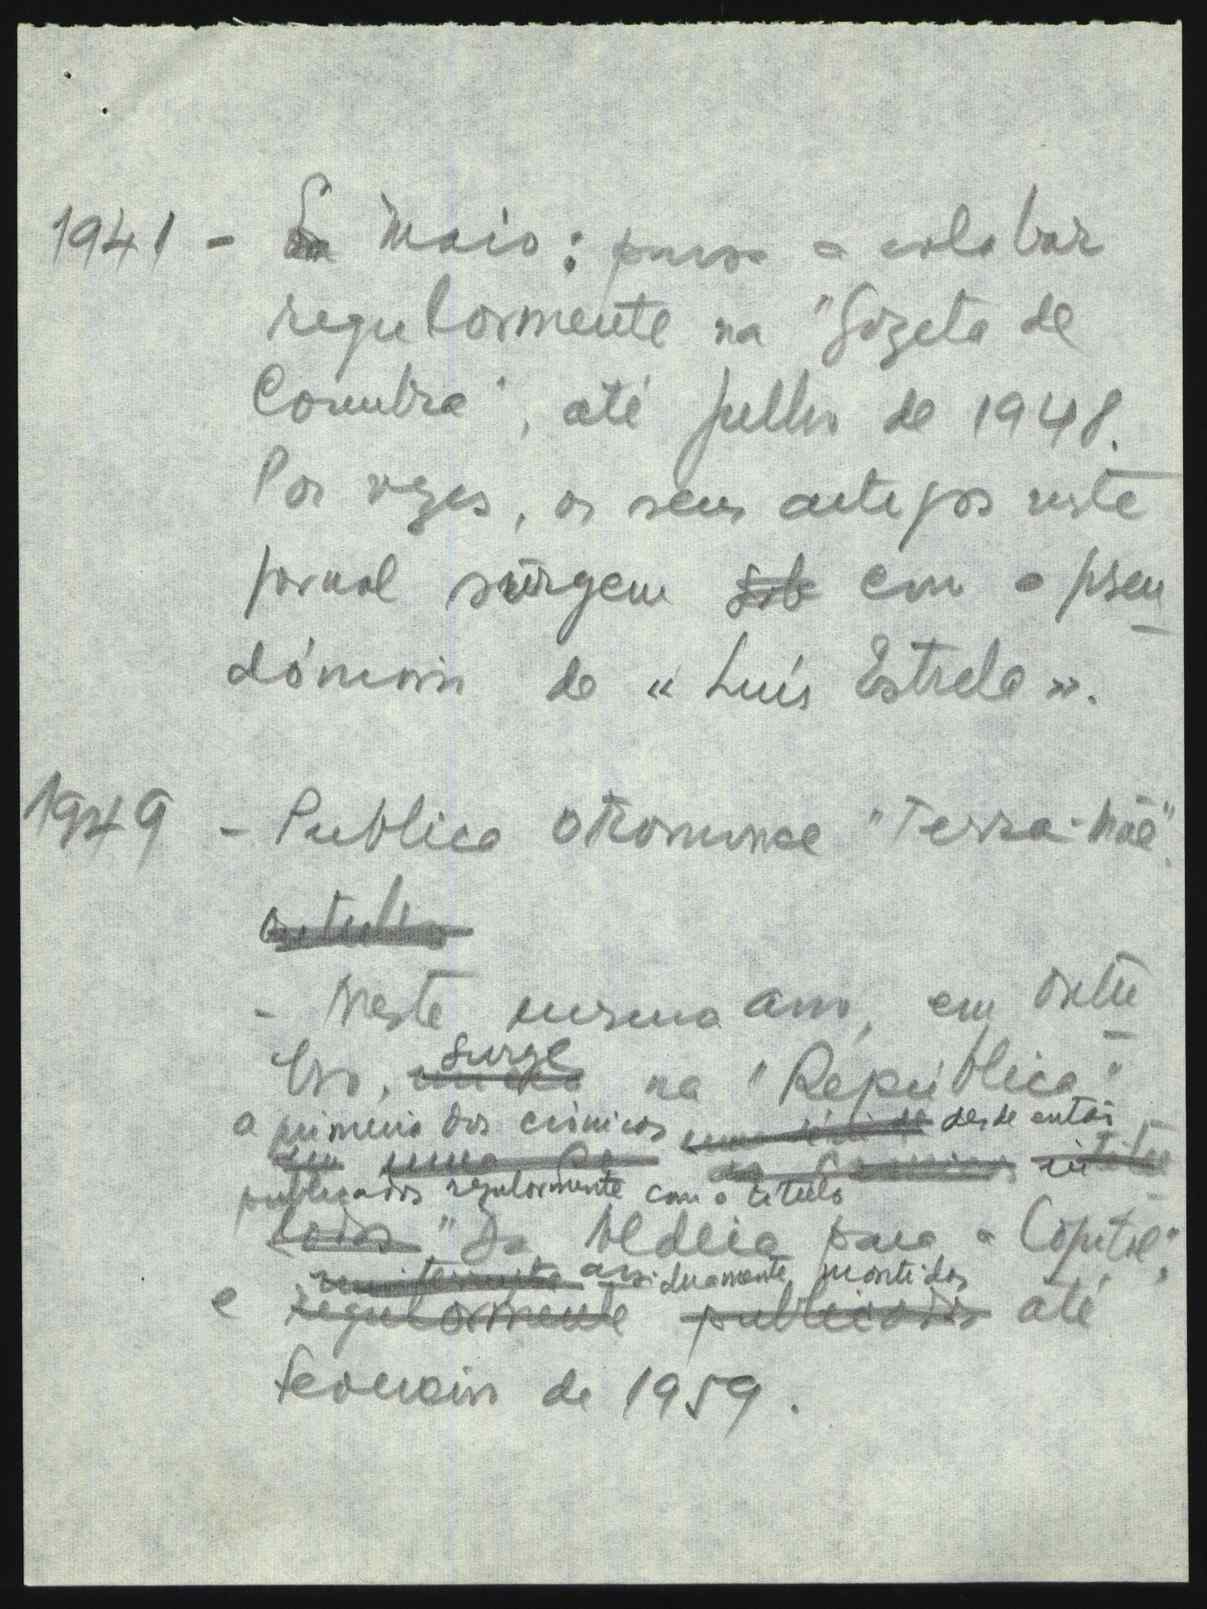 1941 - Em Maio: passa a colabar
regularmente na "Gazeta de
Coimbra", até Julho de 1948.
Por vezes, os seus artigos neste
jornal surgem sob com o pseu
dónimo de « Luís Estrela ».
1949 - Publica o romance "Terra-Mãe".
outubro
- Neste mesmo ano, em outu
bro, surge na "República"
a primeira das crónicas desde então
intitu
publicadas regularmente com o título
ladas "Da Aldeia para a Capital",
assiduamente mantidas
e regularmente publicadas até
fevereiro de 1959.